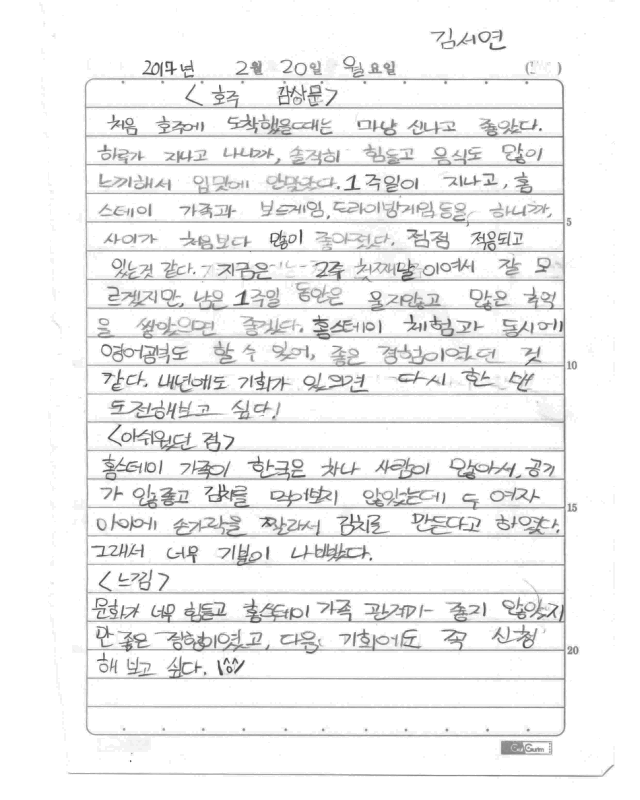 김서연
2017년 2월 20일 월요일
< 호주 감상문 >
처음 호주에 도착했을때는 마냥 신나고 좋았다.
하루가 지나고 나니까, 솔직히 힘들고 음식도 많이
느끼해서 입맛에 안맞았다. 1주일이 지나고, 홈
스테이 가족과 보드게임, 드라이방게임등을, 하니까,
사이가 처음보다 많이 좋아졌다. 점점 적응되고
있는것 같다. 지금은 2주 첫째날이여서 잘 모
르겠지만, 남은 1주일 동안은 울지않고 많은 추억
을 쌓았으면 좋겠다. 홈스테이 체험과 동시에
영어공부도 할 수 있어, 좋은 경험이였던 것
같다. 내년에도 기회가 있으면 다시 한 번
도전해보고 싶다!
<아쉬웠던 점>
홈스테이 가족이 한국은 차나 사람이 많아서, 공기
가 안좋고 김치를 먹어보지 않았는데 두 여자
아이에 손가락을 짤라서 김치로 만든다고 하였다.
그래서 너무 기분이 나빴다.
<느낌>
문화가 너무 힘들고 홈스테이 가족 관계가 좋지 않았지
만 좋은 경험이였고, 다음 기회에도 꼭 신청
해 보고 싶다. \^o^/
5
10
15
20